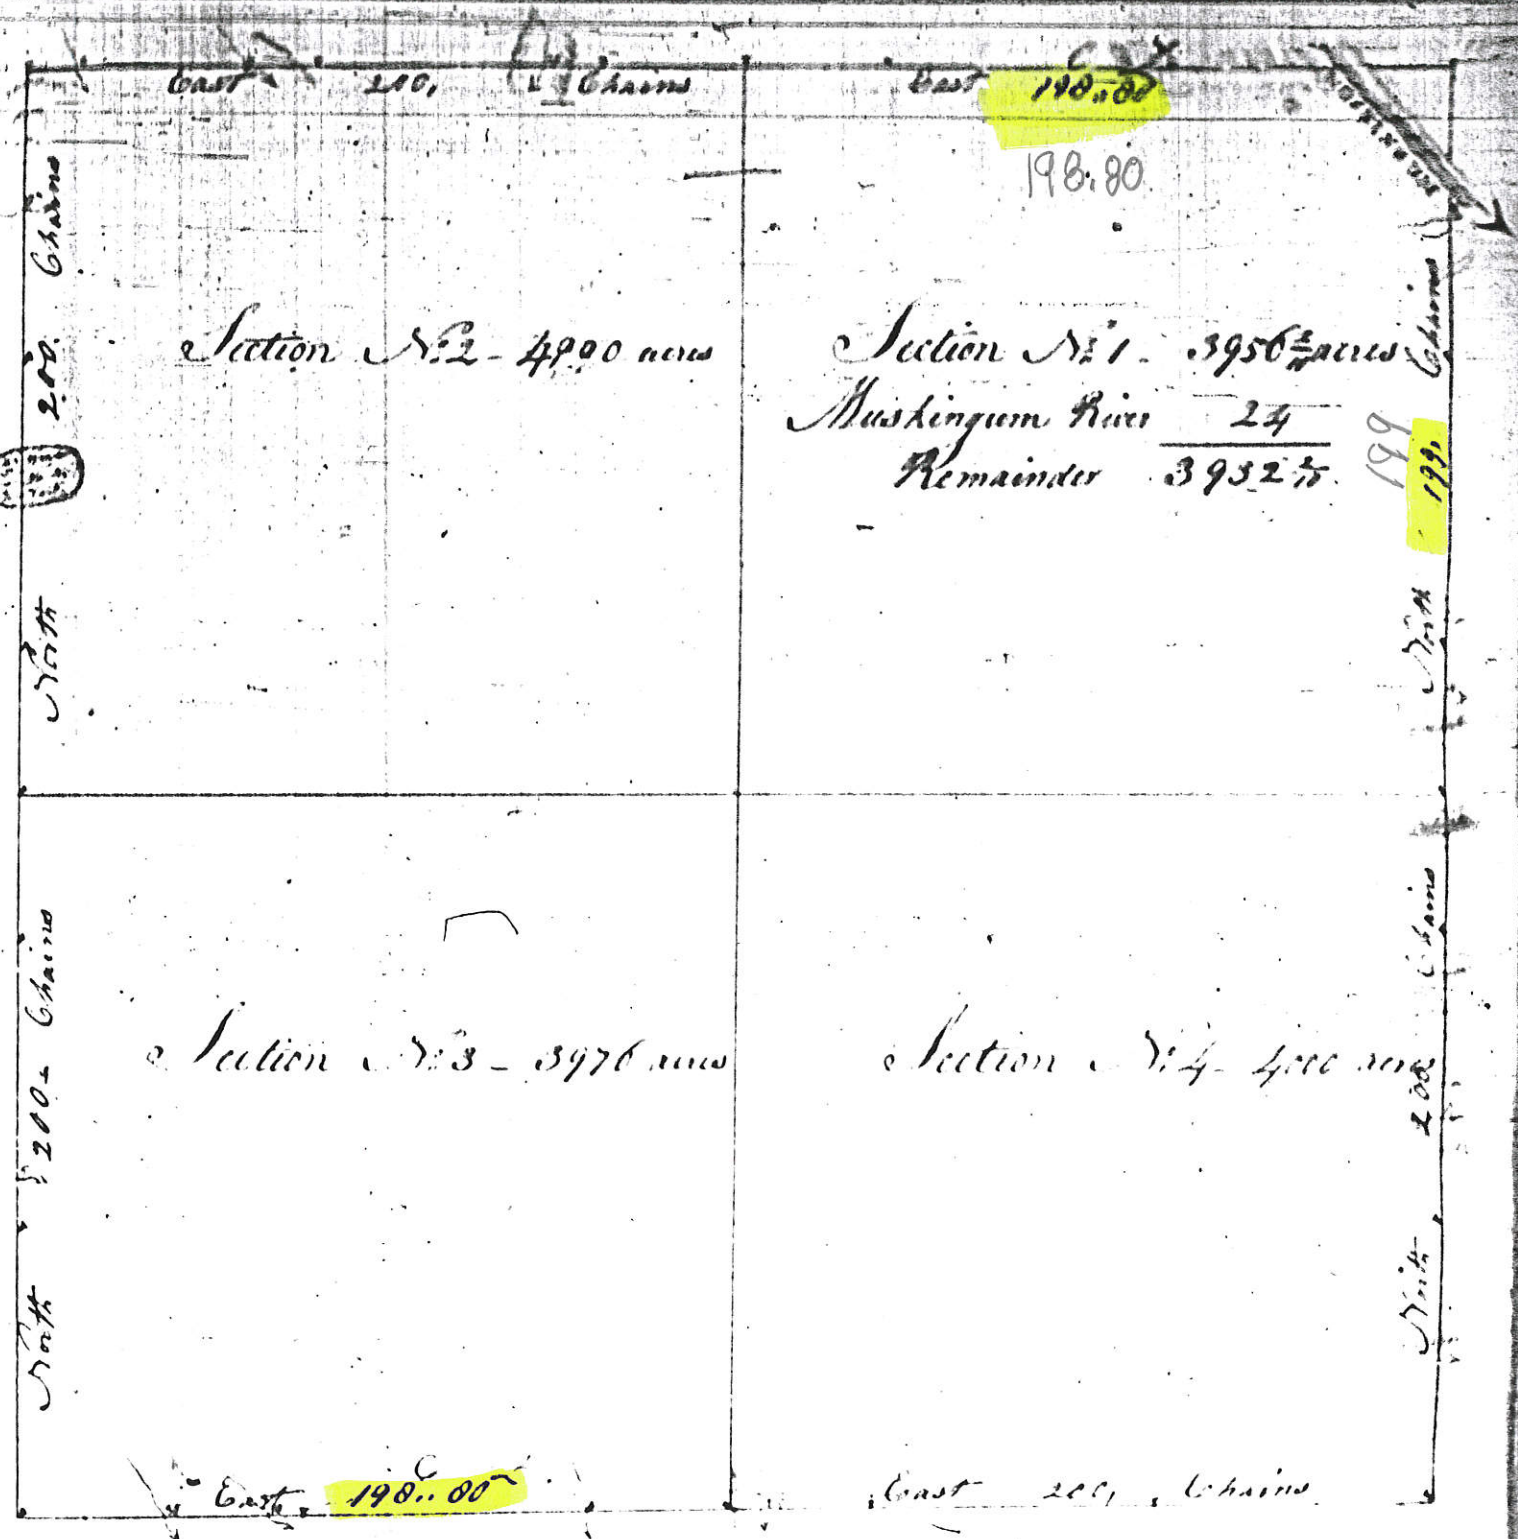 East 200, Chains
East 198..80
198.80
North 200. Chains
Section No. 2 - 4000 acres
Section No. 1 - 3956 2/10 acres
Muskingum River 24
Remainder 3932 2/10
199
North 199. Chains
North 200 - Chains
Section No. 3 - 3976 acres
Section No. 4 - 4000 acres
North 200 Chains
East 198..80
East 200, Chains